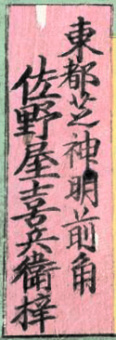 東都芝神明前角
佐野屋喜兵衛梓